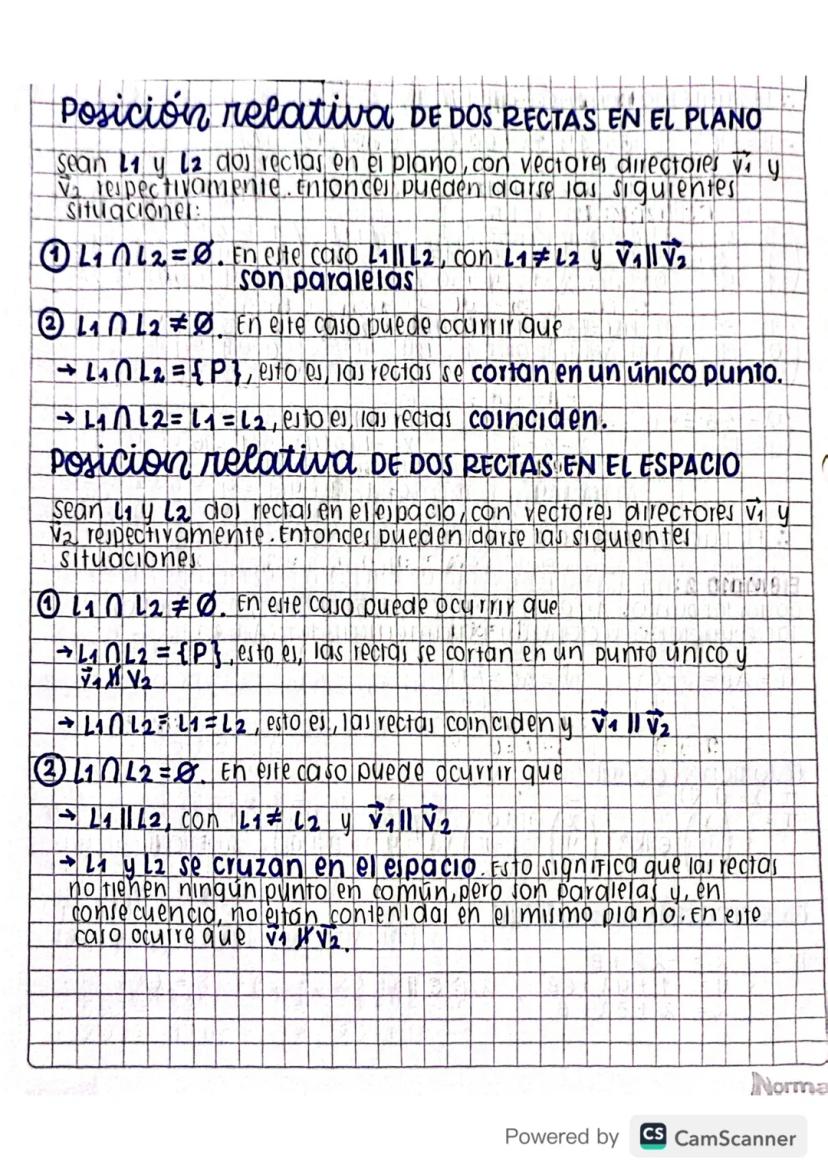 Posición relativa DE DOS RECTAS EN EL PLANO
Sean L1 y L2 dos rectas en el plano, con vectores directores v⃗1 y
v⃗2 respectivamente. Entonces pueden darse las siguientes
situaciones:
① L1 ∩ L2 = Ø. En este caso L1 || L2, con L1 ≠ L2 y v⃗1 || v⃗2
son paralelas
② L1 ∩ L2 ≠ Ø. En este caso puede ocurrir que
→ L1 ∩ L2 = {P}, esto es, las rectas se cortan en un único punto.
→ L1 ∩ L2 = L1 = L2, esto es, las rectas coinciden.
Posicion relativa DE DOS RECTAS EN EL ESPACIO
Sean L1 y L2 dos rectas en el espacio, con vectores directores v⃗1 y
v⃗2 respectivamente. Entonces pueden darse las siguientes
situaciones
① L1 ∩ L2 ≠ Ø. En este caso puede ocurrir que
→ L1 ∩ L2 = {P}, esto es, las rectas se cortan en un punto único y
v⃗1 ∦ v⃗2
→ L1 ∩ L2 = L1 = L2, esto es, las rectas coinciden y v⃗1 || v⃗2
② L1 ∩ L2 = Ø. En este caso puede ocurrir que
→ L1 || L2, con L1 ≠ L2 y v⃗1 || v⃗2
→ L1 y L2 se cruzan en el espacio. Esto significa que las rectas
no tienen ningún punto en común, pero son paralelas y, en
consecuencia, no están contenidas en el mismo plano. En este
caso ocurre que v⃗1 ∦ v⃗2.
Norma
Powered by CS CamScanner